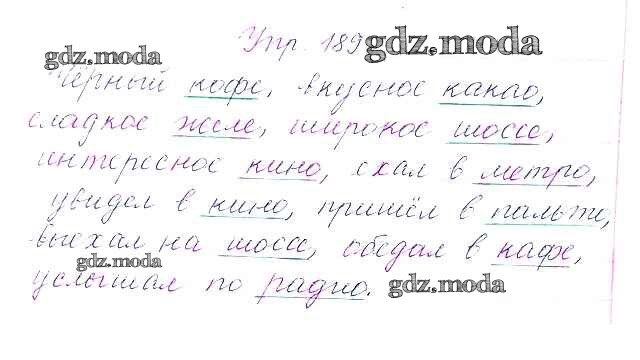 Упр. 189 gdz.moda
gdz.moda
Чёрный кофе, вкусное какао,
сладкое желе, широкое шоссе,
интересное кино, ехал в метро,
увидел в кино, пришёл в пальто,
выехал на шоссе, обедал в кафе,
gdz.moda
услышал по радио. gdz.moda